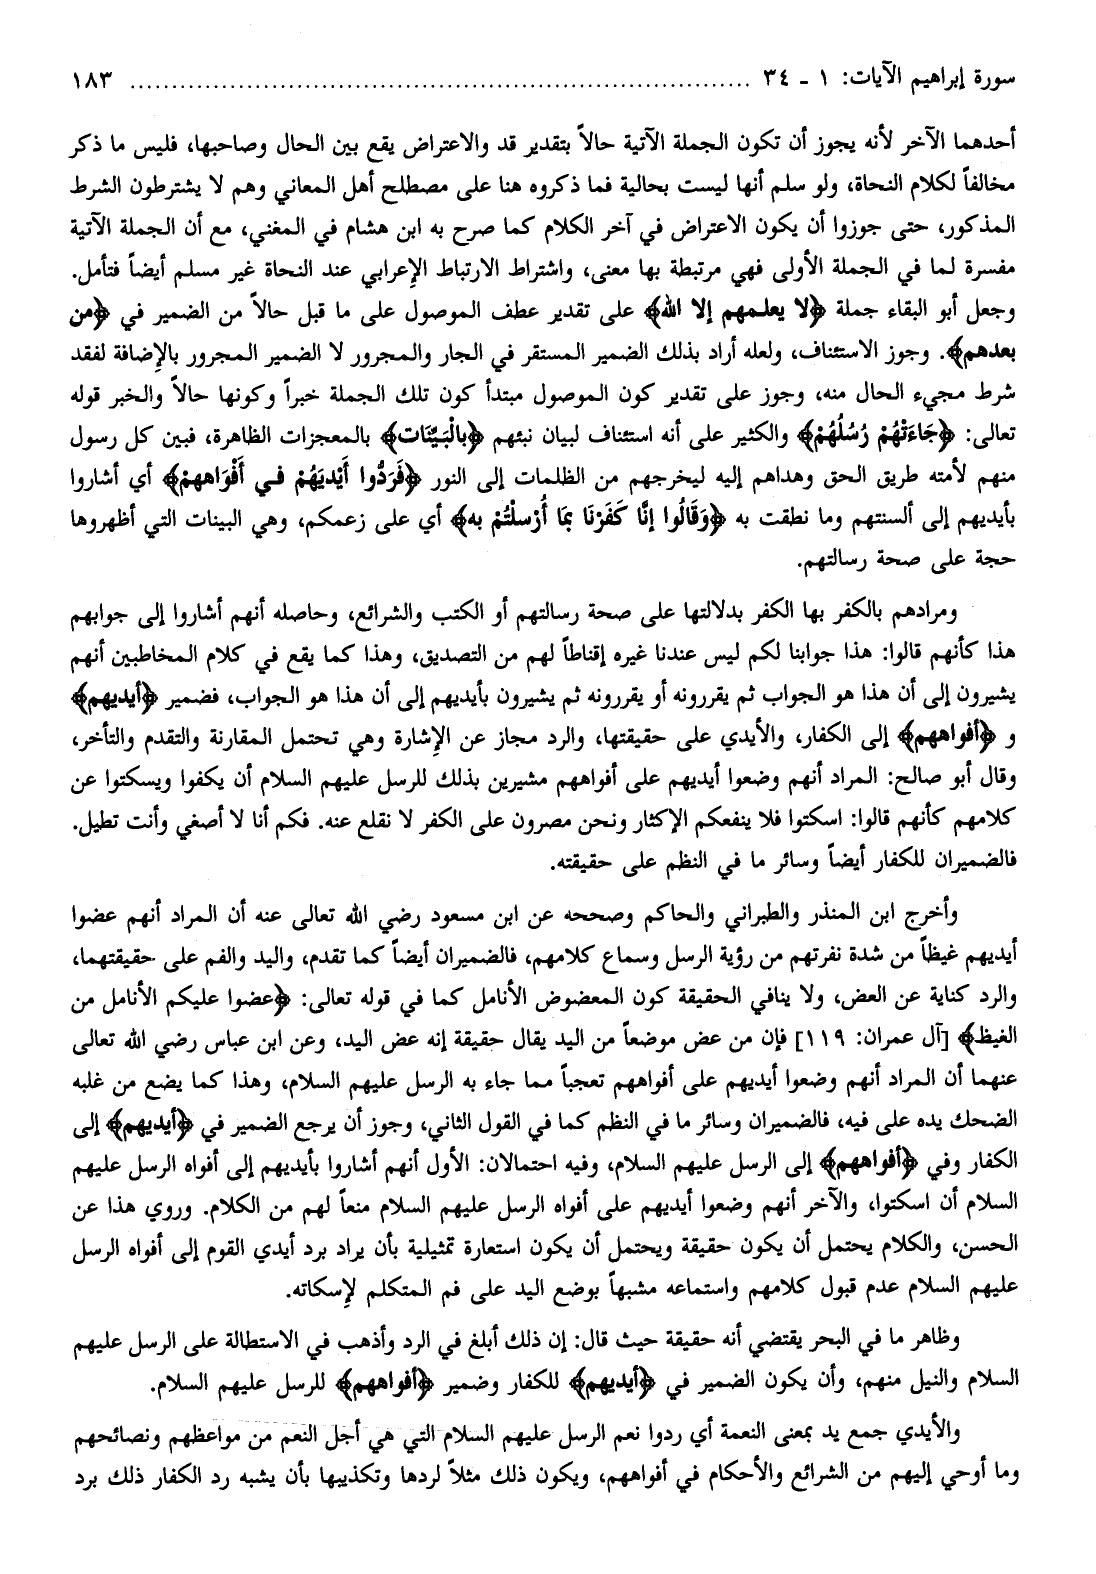 سورة إبراهيم الآيات: ١ ـ ٣٤ ........................................................................... ١٨٣
أحدهما الآخر لأنه يجوز أن تكون الجملة الآتية حالاً بتقدير قد والاعتراض يقع بين الحال وصاحبها، فليس ما ذكر
مخالفاً لكلام النحاة، ولو سلم أنها ليست بحالية فما ذكروه هنا على مصطلح أهل المعاني وهم لا يشترطون الشرط
المذكور، حتى جوزوا أن يكون الاعتراض في آخر الكلام كما صرح به ابن هشام في المغني، مع أن الجملة الآتية
مفسرة لما في الجملة الأولى فهي مرتبطة بها معنى، واشتراط الارتباط الإعرابي عند النحاة غير مسلم أيضاً فتأمل.
وجعل أبو البقاء جملة ﴿لا يعلمهم إلا الله﴾ على تقدير عطف الموصول على ما قبل حالاً من الضمير في ﴿من
بعدهم﴾. وجوز الاستئناف، ولعله أراد بذلك الضمير المستقر في الجار والمجرور لا الضمير المجرور بالإضافة لفقد
شرط مجيء الحال منه، وجوز على تقدير كون الموصول مبتدأ كون تلك الجملة خبراً وكونها حالاً والخبر قوله
تعالى: ﴿جَاءَتْهُمْ رُسُلُهُمْ﴾ والكثير على أنه استئناف لبيان نبئهم ﴿بالْبَيِّنَات﴾ بالمعجزات الظاهرة، فبين كل رسول
منهم لأمته طريق الحق وهداهم إليه ليخرجهم من الظلمات إلى النور ﴿فَرَدُّوا أَيْديَهُمْ في أَفْوَاههمْ﴾ أي أشاروا
بأيديهم إلى ألسنتهم وما نطقت به ﴿وَقَالُوا إنَّا كَفَرْنَا بمَا أُرْسلْتُمْ به﴾ أي على زعمكم، وهي البينات التي أظهروها
حجة على صحة رسالتهم.
ومرادهم بالكفر بها الكفر بدلالتها على صحة رسالتهم أو الكتب والشرائع، وحاصله أنهم أشاروا إلى جوابهم
هذا كأنهم قالوا: هذا جوابنا لكم ليس عندنا غيره إقناطاً لهم من التصديق، وهذا كما يقع في كلام المخاطبين أنهم
يشيرون إلى أن هذا هو الجواب ثم يقررونه أو يقررونه ثم يشيرون بأيديهم إلى أن هذا هو الجواب، فضمير ﴿أيديهم﴾
و ﴿أفواههم﴾ إلى الكفار، والأيدي على حقيقتها، والرد مجاز عن الإشارة وهي تحتمل المقارنة والتقدم والتأخر،
وقال أبو صالح: المراد أنهم وضعوا أيديهم على أفواههم مشيرين بذلك للرسل عليهم السلام أن يكفوا ويسكتوا عن
كلامهم كأنهم قالوا: اسكتوا فلا ينفعكم الإكثار ونحن مصرون على الكفر لا نقلع عنه. فكم أنا لا أصغي وأنت تطيل.
فالضميران للكفار أيضاً وسائر ما في النظم على حقيقته.
وأخرج ابن المنذر والطبراني والحاكم وصححه عن ابن مسعود رضي الله تعالى عنه أن المراد أنهم عضوا
أيديهم غيظاً من شدة نفرتهم من رؤية الرسل وسماع كلامهم، فالضميران أيضاً كما تقدم، واليد والفم على حقيقتهما،
والرد كناية عن العض، ولا ينافي الحقيقة كون المعضوض الأنامل كما في قوله تعالى: ﴿عضوا عليكم الأنامل من
الغيظ﴾ [آل عمران: ١١٩] فإن من عض موضعاً من اليد يقال حقيقة إنه عض اليد، وعن ابن عباس رضي الله تعالى
عنهما أن المراد أنهم وضعوا أيديهم على أفواههم تعجباً مما جاء به الرسل عليهم السلام، وهذا كما يضع من غلبه
الضحك يده على فيه، فالضميران وسائر ما في النظم كما في القول الثاني، وجوز أن يرجع الضمير في ﴿أيديهم﴾ إلى
الكفار وفي ﴿أفواههم﴾ إلى الرسل عليهم السلام، وفيه احتمالان: الأول أنهم أشاروا بأيديهم إلى أفواه الرسل عليهم
السلام أن اسكتوا، والآخر أنهم وضعوا أيديهم على أفواه الرسل عليهم السلام منعاً لهم من الكلام. وروي هذا عن
الحسن، والكلام يحتمل أن يكون حقيقة ويحتمل أن يكون استعارة تمثيلية بأن يراد برد أيدي القوم إلى أفواه الرسل
عليهم السلام عدم قبول كلامهم واستماعه مشبهاً بوضع اليد على فم المتكلم لإسكاته.
وظاهر ما في البحر يقتضي أنه حقيقة حيث قال: إن ذلك أبلغ في الرد وأذهب في الاستطالة على الرسل عليهم
السلام والنيل منهم، وأن يكون الضمير في ﴿أيديهم﴾ للكفار وضمير ﴿أفواههم﴾ للرسل عليهم السلام.
والأيدي جمع يد بمعنى النعمة أي ردوا نعم الرسل عليهم السلام التي هي أجل النعم من مواعظهم ونصائحهم
وما أوحي إليهم من الشرائع والأحكام في أفواههم، ويكون ذلك مثلاً لردها وتكذيبها بأن يشبه رد الكفار ذلك برد